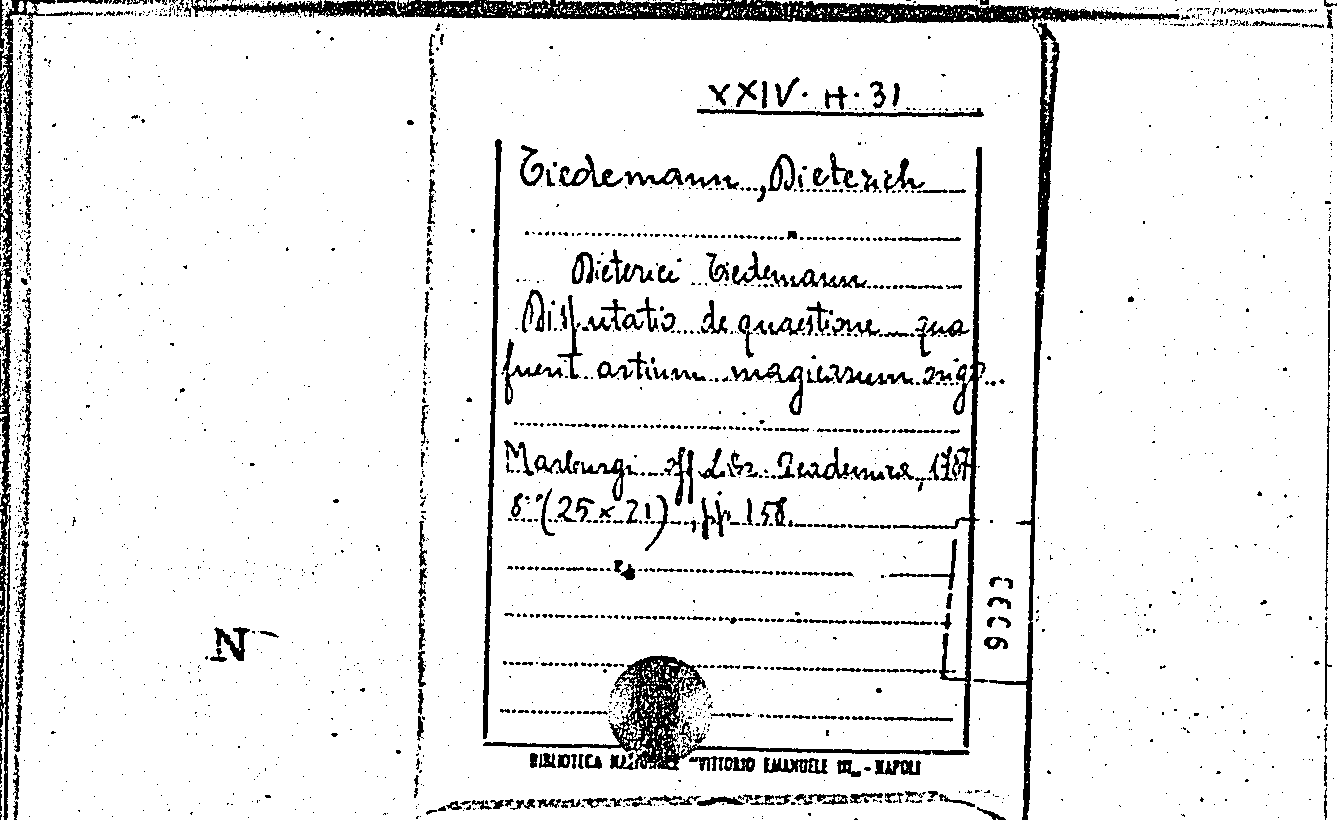 XXIV. H. 31
Tiedemann, Dieterich
Dieterici Tiedemann
Disputatio de quaestione qua
fuerit artium magicarum origo
Marburgi off. Lib. Academica, 1787
8° (25 x 21), pp. 158.
N
BIBLIOTECA NAZIONALE "VITTORIO EMANUELE III" - NAPOLI